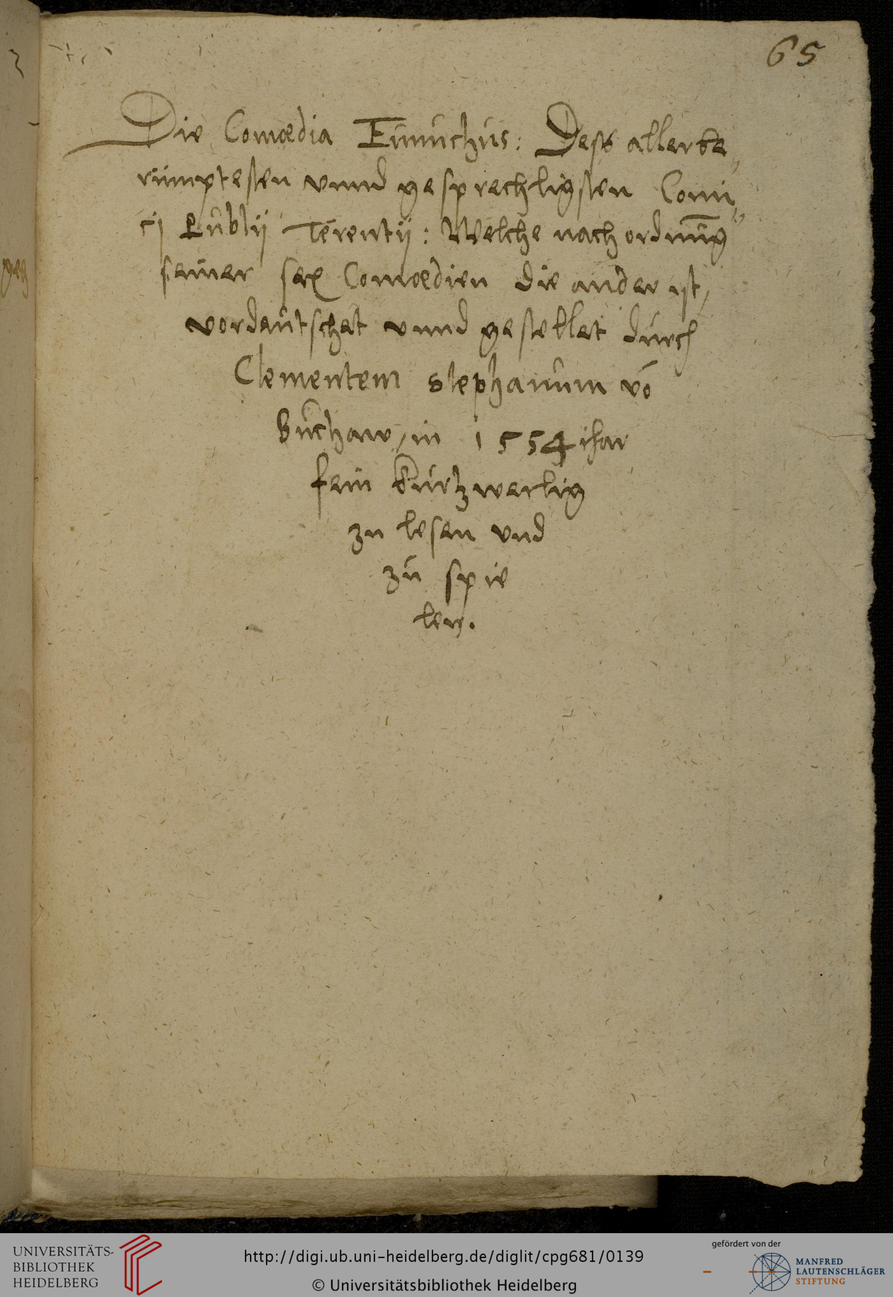 65
Die Comœdia Eunuchus: Dess allerbe„
rümptesten vnnd gesprechligsten Comi„
cj Publij Terentij: Welche nach ordnūg
seiner sex Comœdien die ander ist,
vordeutschet vnnd gestellet durch
Clementem Stephanum võ
Buchaw, in 1554 ihar
fein kurtzweilig
zu lesen vnd
zu spie
len.
UNIVERSITÄTS-
BIBLIOTHEK
HEIDELBERG
http://digi.ub.uni-heidelberg.de/diglit/cpg681/0139
© Universitätsbibliothek Heidelberg
gefördert von der
MANFRED
LAUTENSCHLÄGER
STIFTUNG